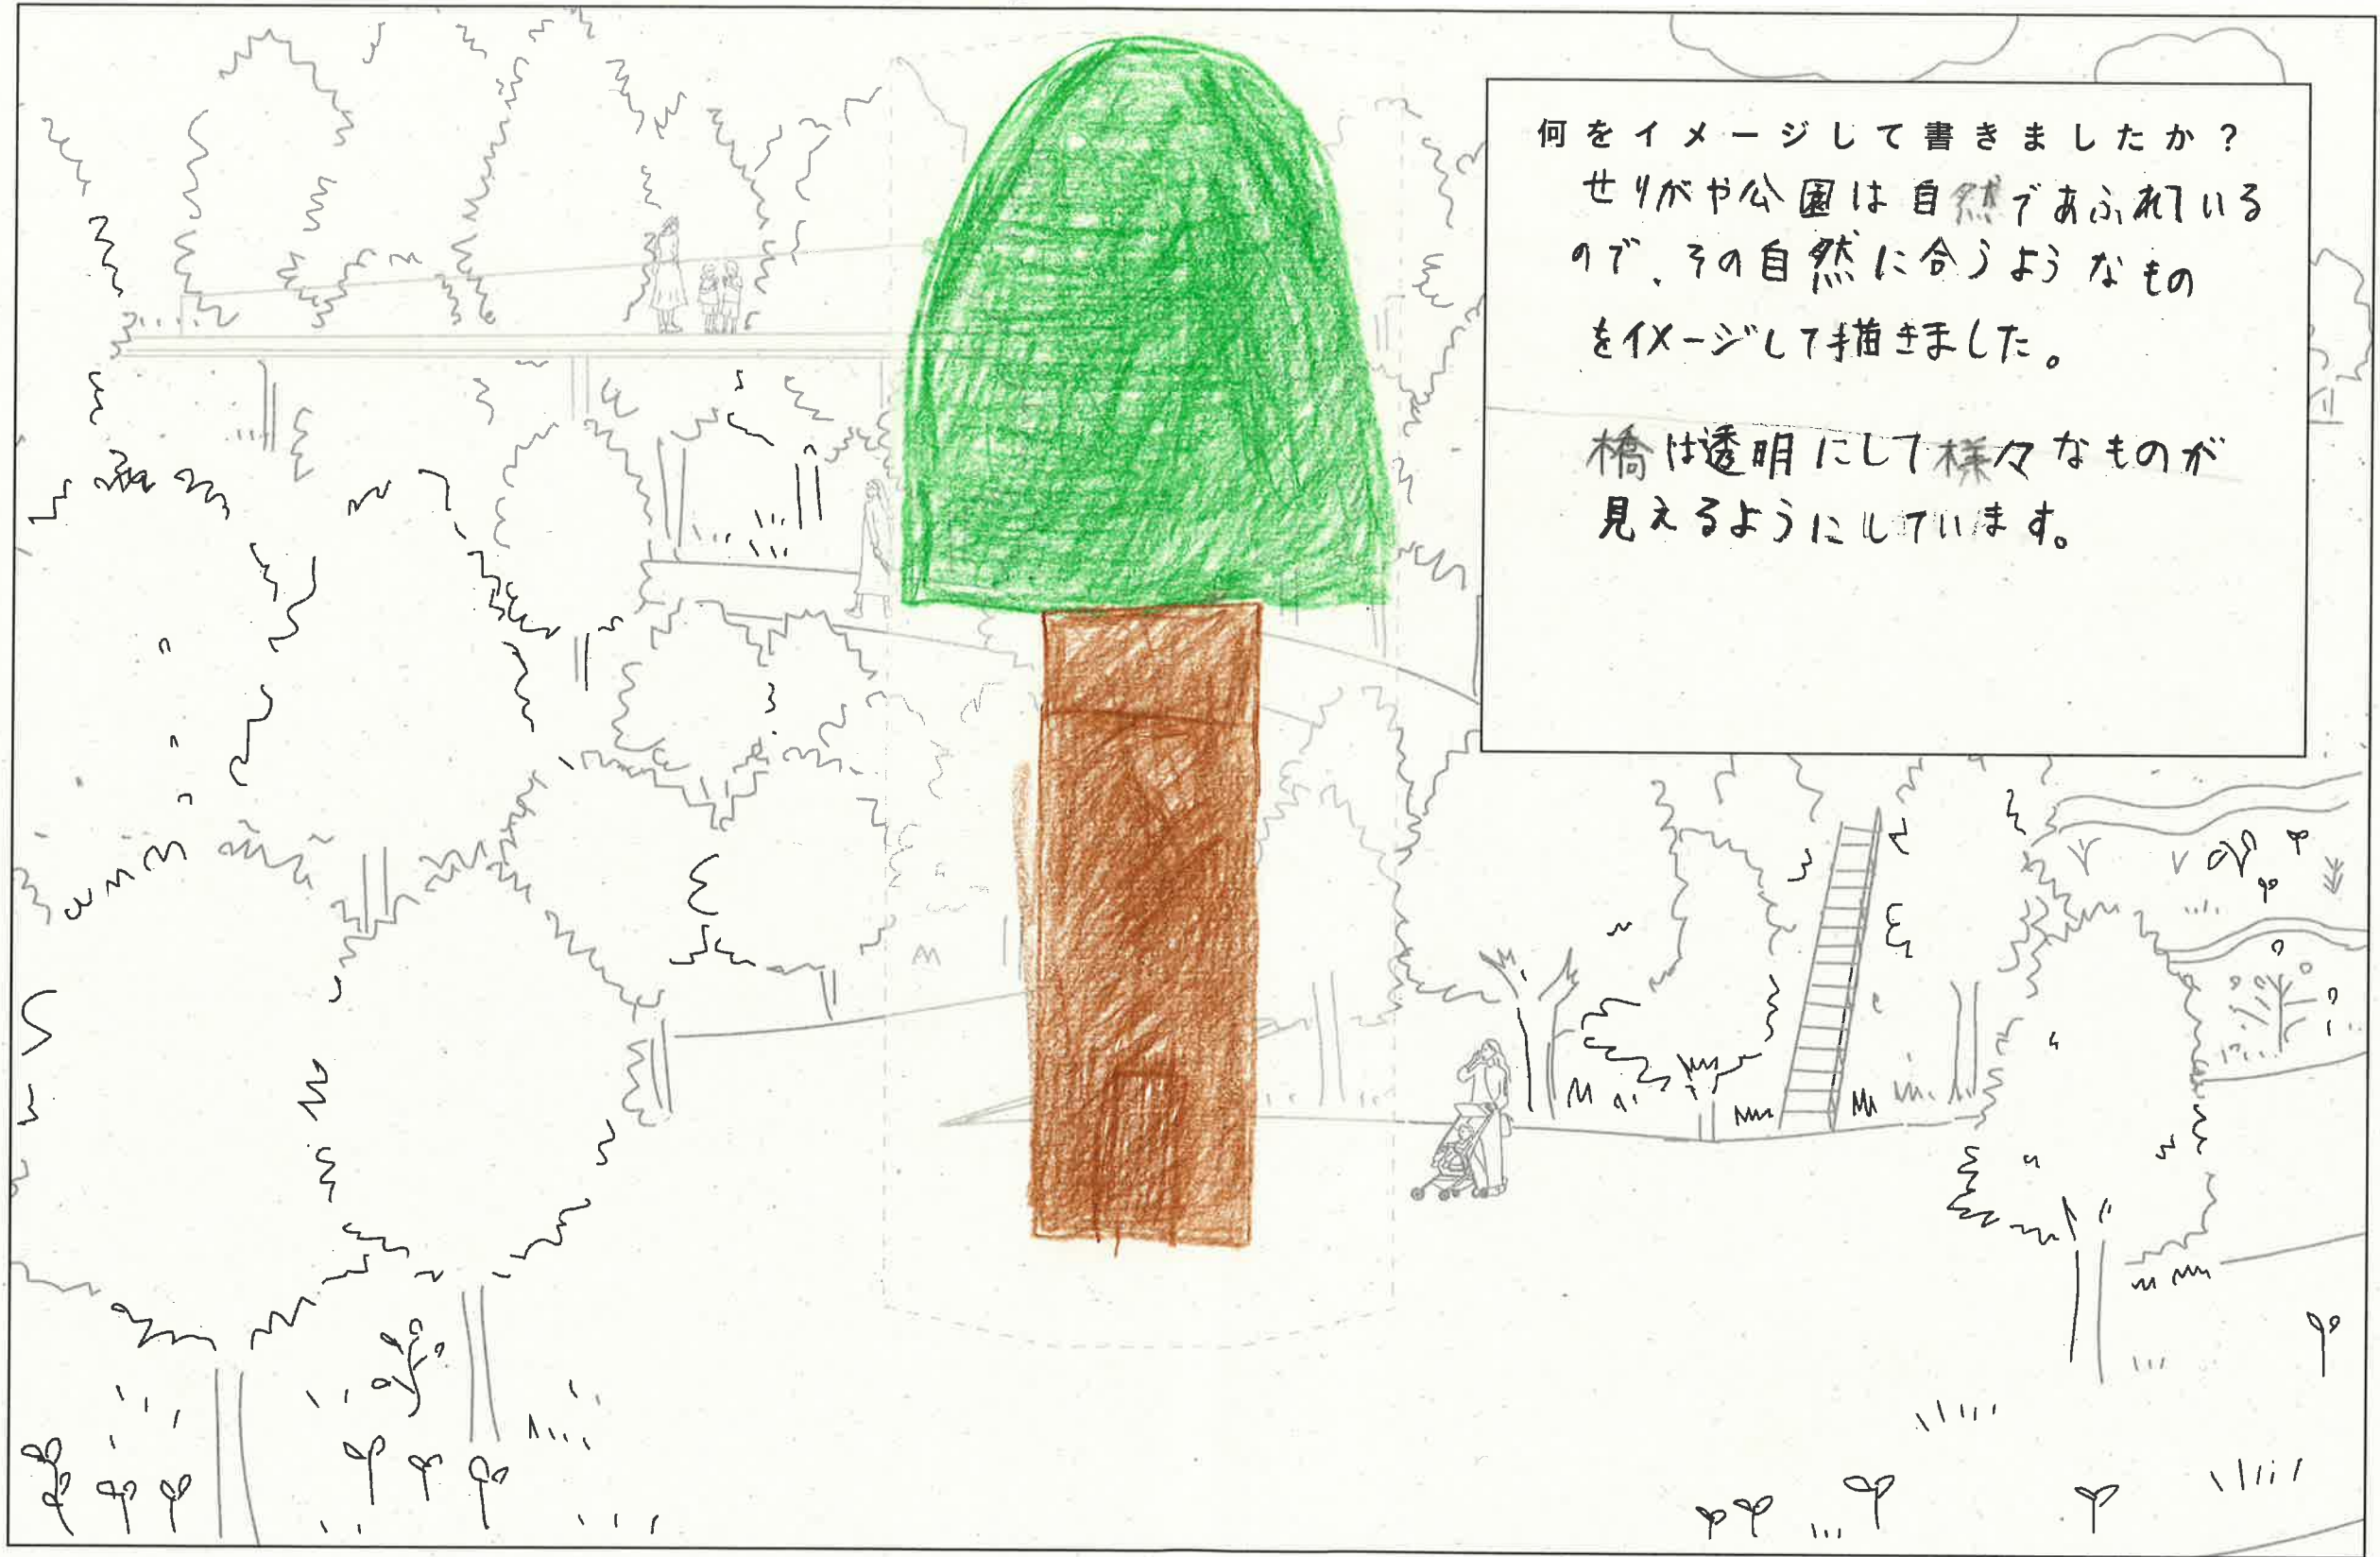 何をイメージして書きましたか？
せりがや公園は自然であふれている
ので、その自然に合うようなもの
をイメージして描きました。
橋は透明にして様々なものが
見えるようにしています。